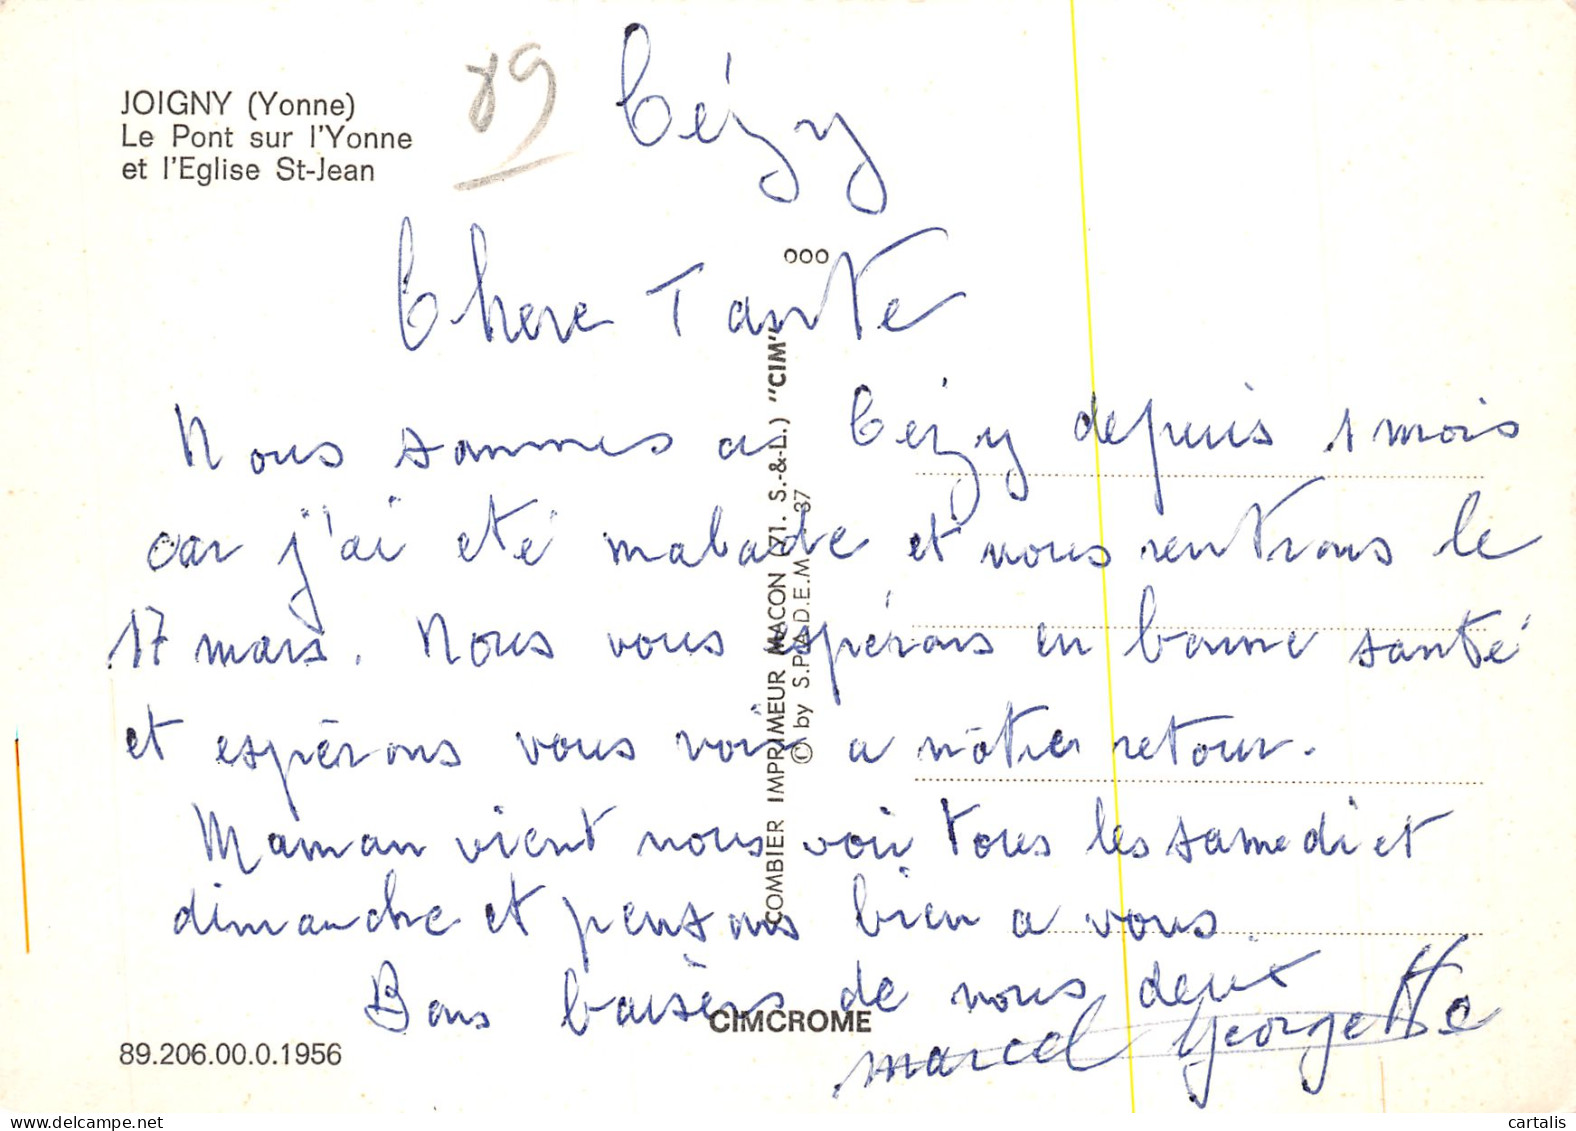 JOIGNY (Yonne)
Le Pont sur l'Yonne
et l'Eglise St-Jean
89
Cézy
Chere Tante
Nous sommes a Cézy depuis 1 mois
car j'ai eté malade et nous rentrons le
17 mars. Nous vous espérons en bonne santé
et espérons vous voir a nôtre retour.
Maman vient nous voir tous les samedi et
dimanche et pensons bien a vous.
Bons baisèrs de nous deux
marcel Georgette
ooo
COMBIER IMPRIMEUR MACON (71. S.-&-L.) "CIM"
© by S.P.A.D.E.M. - 37
CIMCROME
89.206.00.0.1956
cartalis